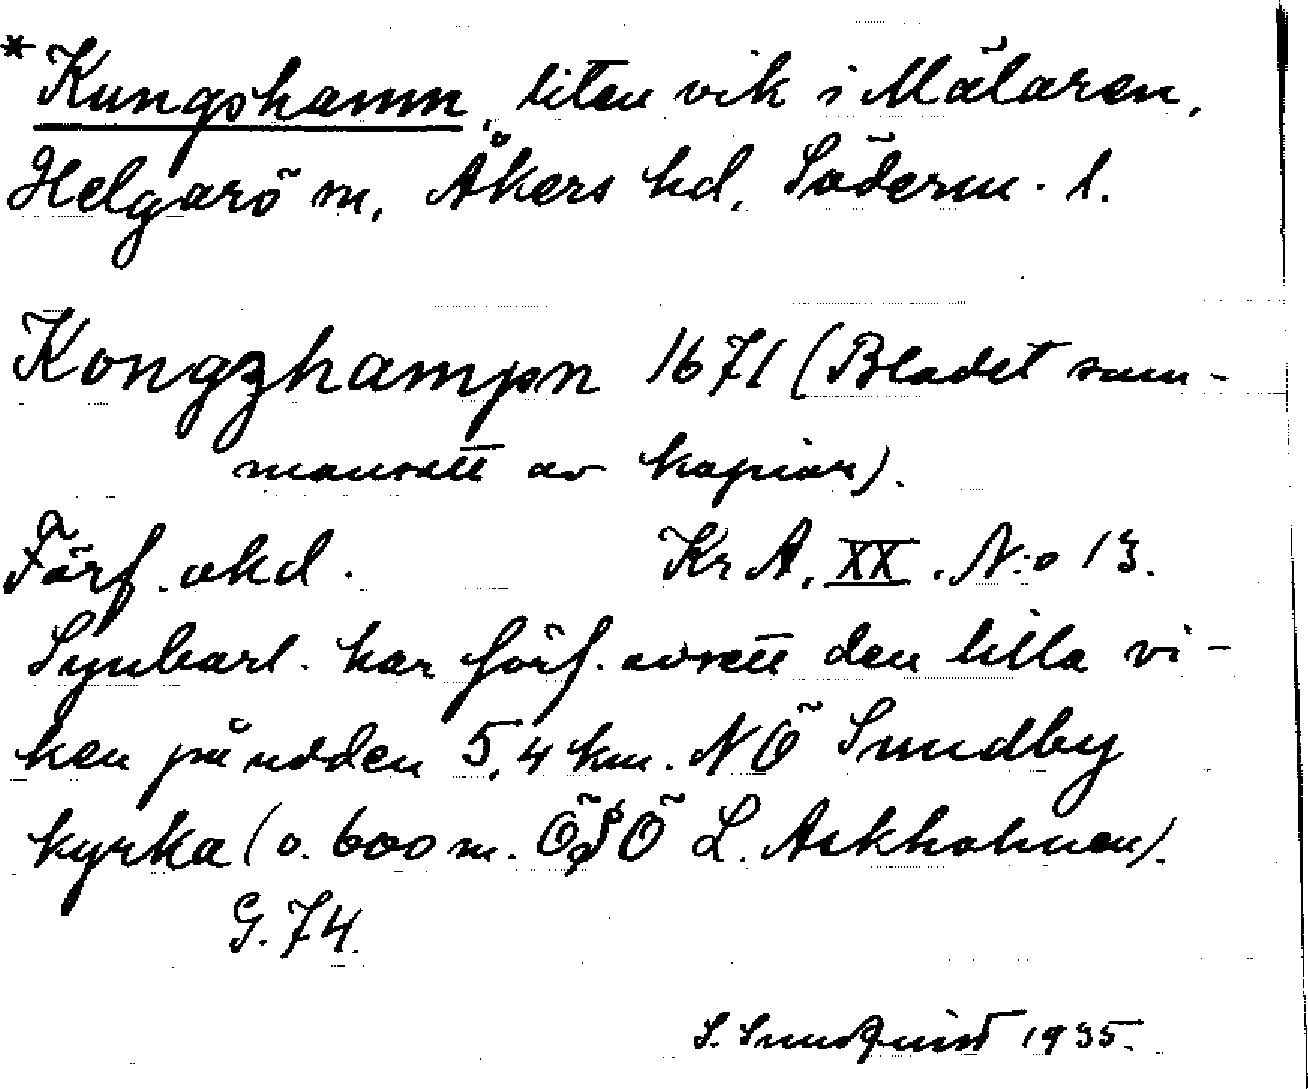 *Kungshamn, liten vik i Mälaren,
Helgarö sn, Åkers hd, Söderm. l.
Kongzhampn 1671 (Bladet sam-
mansatt av kopior).
Förf. okd. Kr A, XX. N:o 13.
Synbarl. har förf. avsett den lilla vi-
ken på udden 5,4 km. NÖ Sundby
kyrka (o. 600 m. ÖSÖ L. Askholmen).
G. 74.
S. Sundquist 1935.